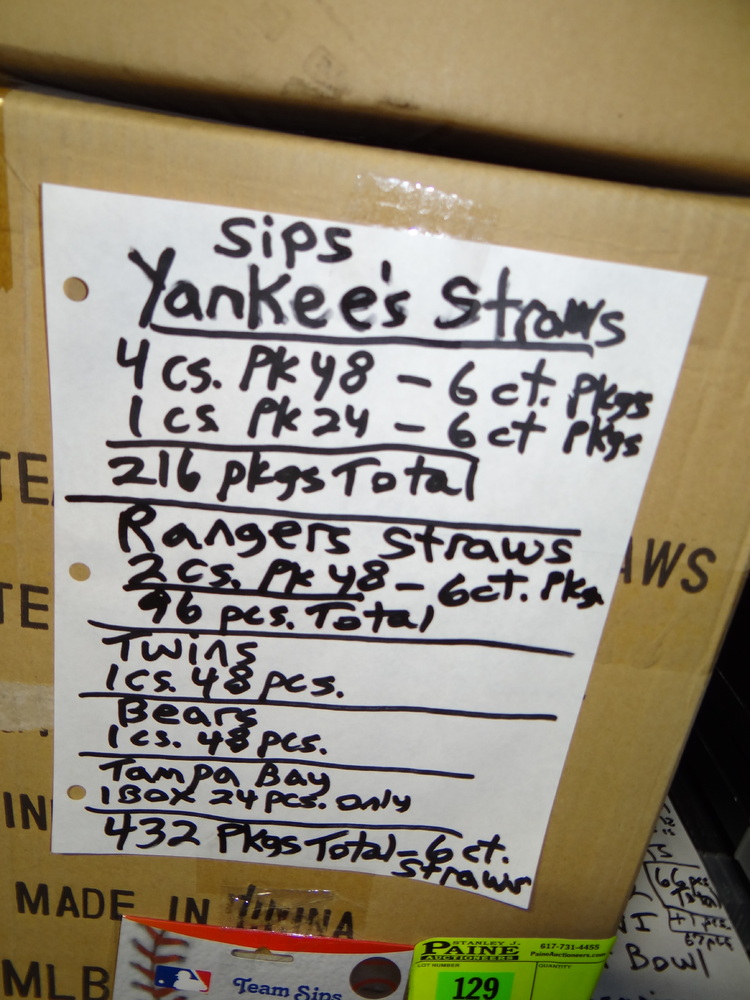 Sips
Yankee's Straws
4 cs. Pk 48 - 6 ct. Pkgs
1 cs Pk 24 - 6 ct Pkgs
216 pkgs Total
Rangers straws
2 cs. Pk 48 - 6 ct. Pkgs
96 pcs. Total
Twins
1 cs. 48 pcs.
Bears
1 cs. 48 pcs.
Tampa Bay
1 Box 24 pcs. only
432 Pkgs Total - 6 ct.
straws
AWS
MADE IN CHINA
MLB
Team Sips
STANLEY J.
PAINE
AUCTIONEERS
617-731-4455
PaineAuctioneers.com
LOT NUMBER
QUANTITY
129
66 pcs
+1 pcs.
67 pcs
Bowl